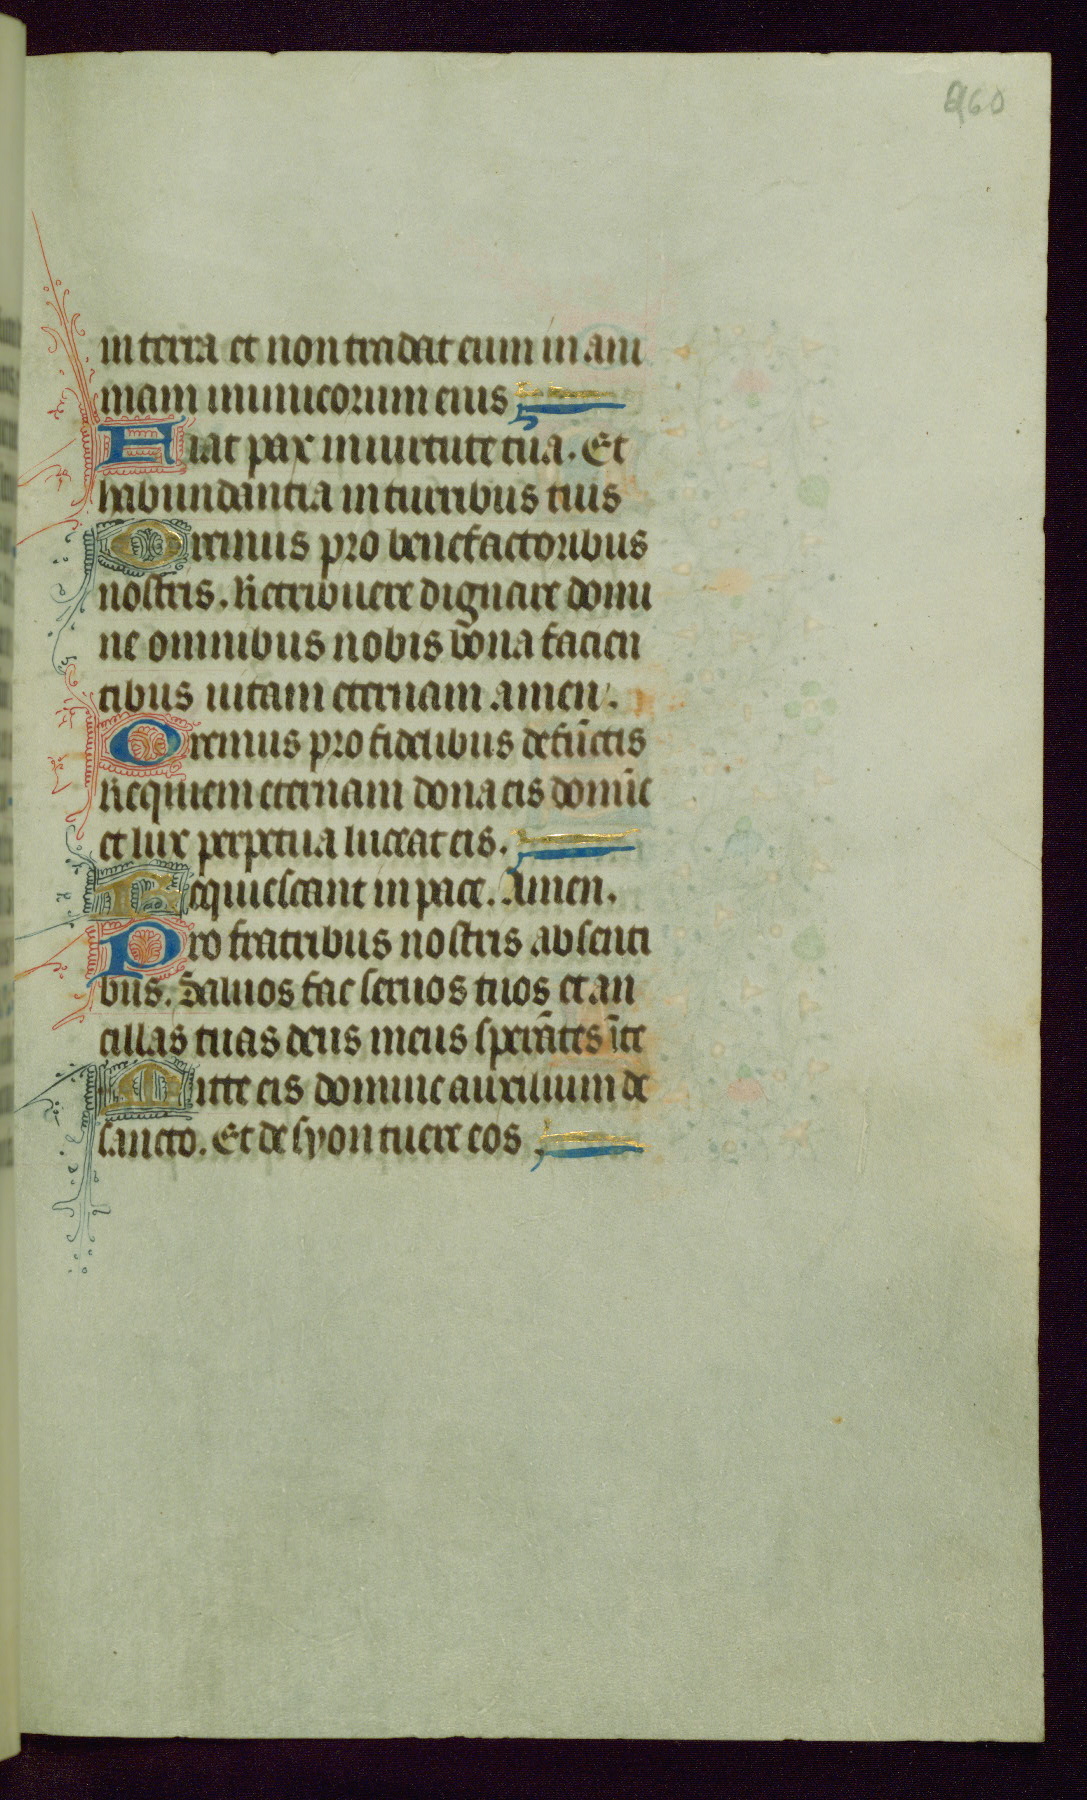 260
in terra et non tradat eum in ani
mam inimicorum eius
Fiat pax in uirtute tua. Et
habundantia in turribus tuis
Oremus pro benefactoribus
nostris. Retribuere dignare domi
ne omnibus nobis bona facien
tibus uitam eternam amen.
Oremus pro fidelibus defūctis
Requiem eternam dona eis domīe
et lux perpetua luceat eis.
Requiescant in pace. Amen.
Pro fratribus nostris absenti
bus. Saluos fac seruos tuos et an
cillas tuas deus meus sperātes ī te
Mitte eis domine auxilium de
sancto. Et de syon tuere eos